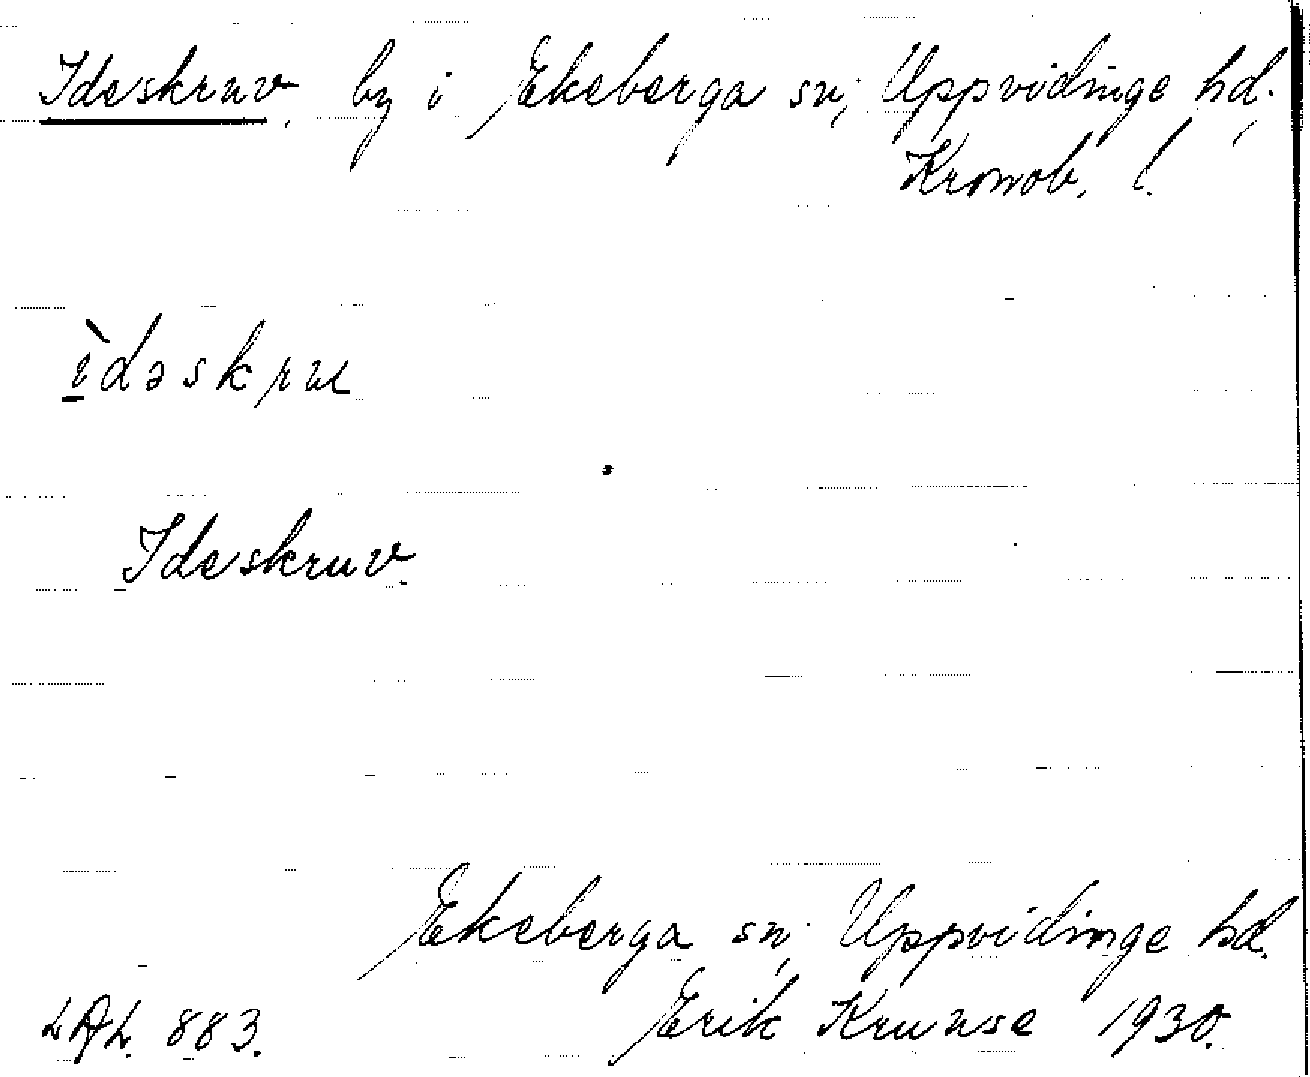 Ideskruv, by i Ekeberga sn, Uppvidinge hd,
Kronob. l.
ìdəskru
Ideskruv
Ekeberga sn, Uppvidinge hd.
LAL. 883. Erik Kruuse 1930.